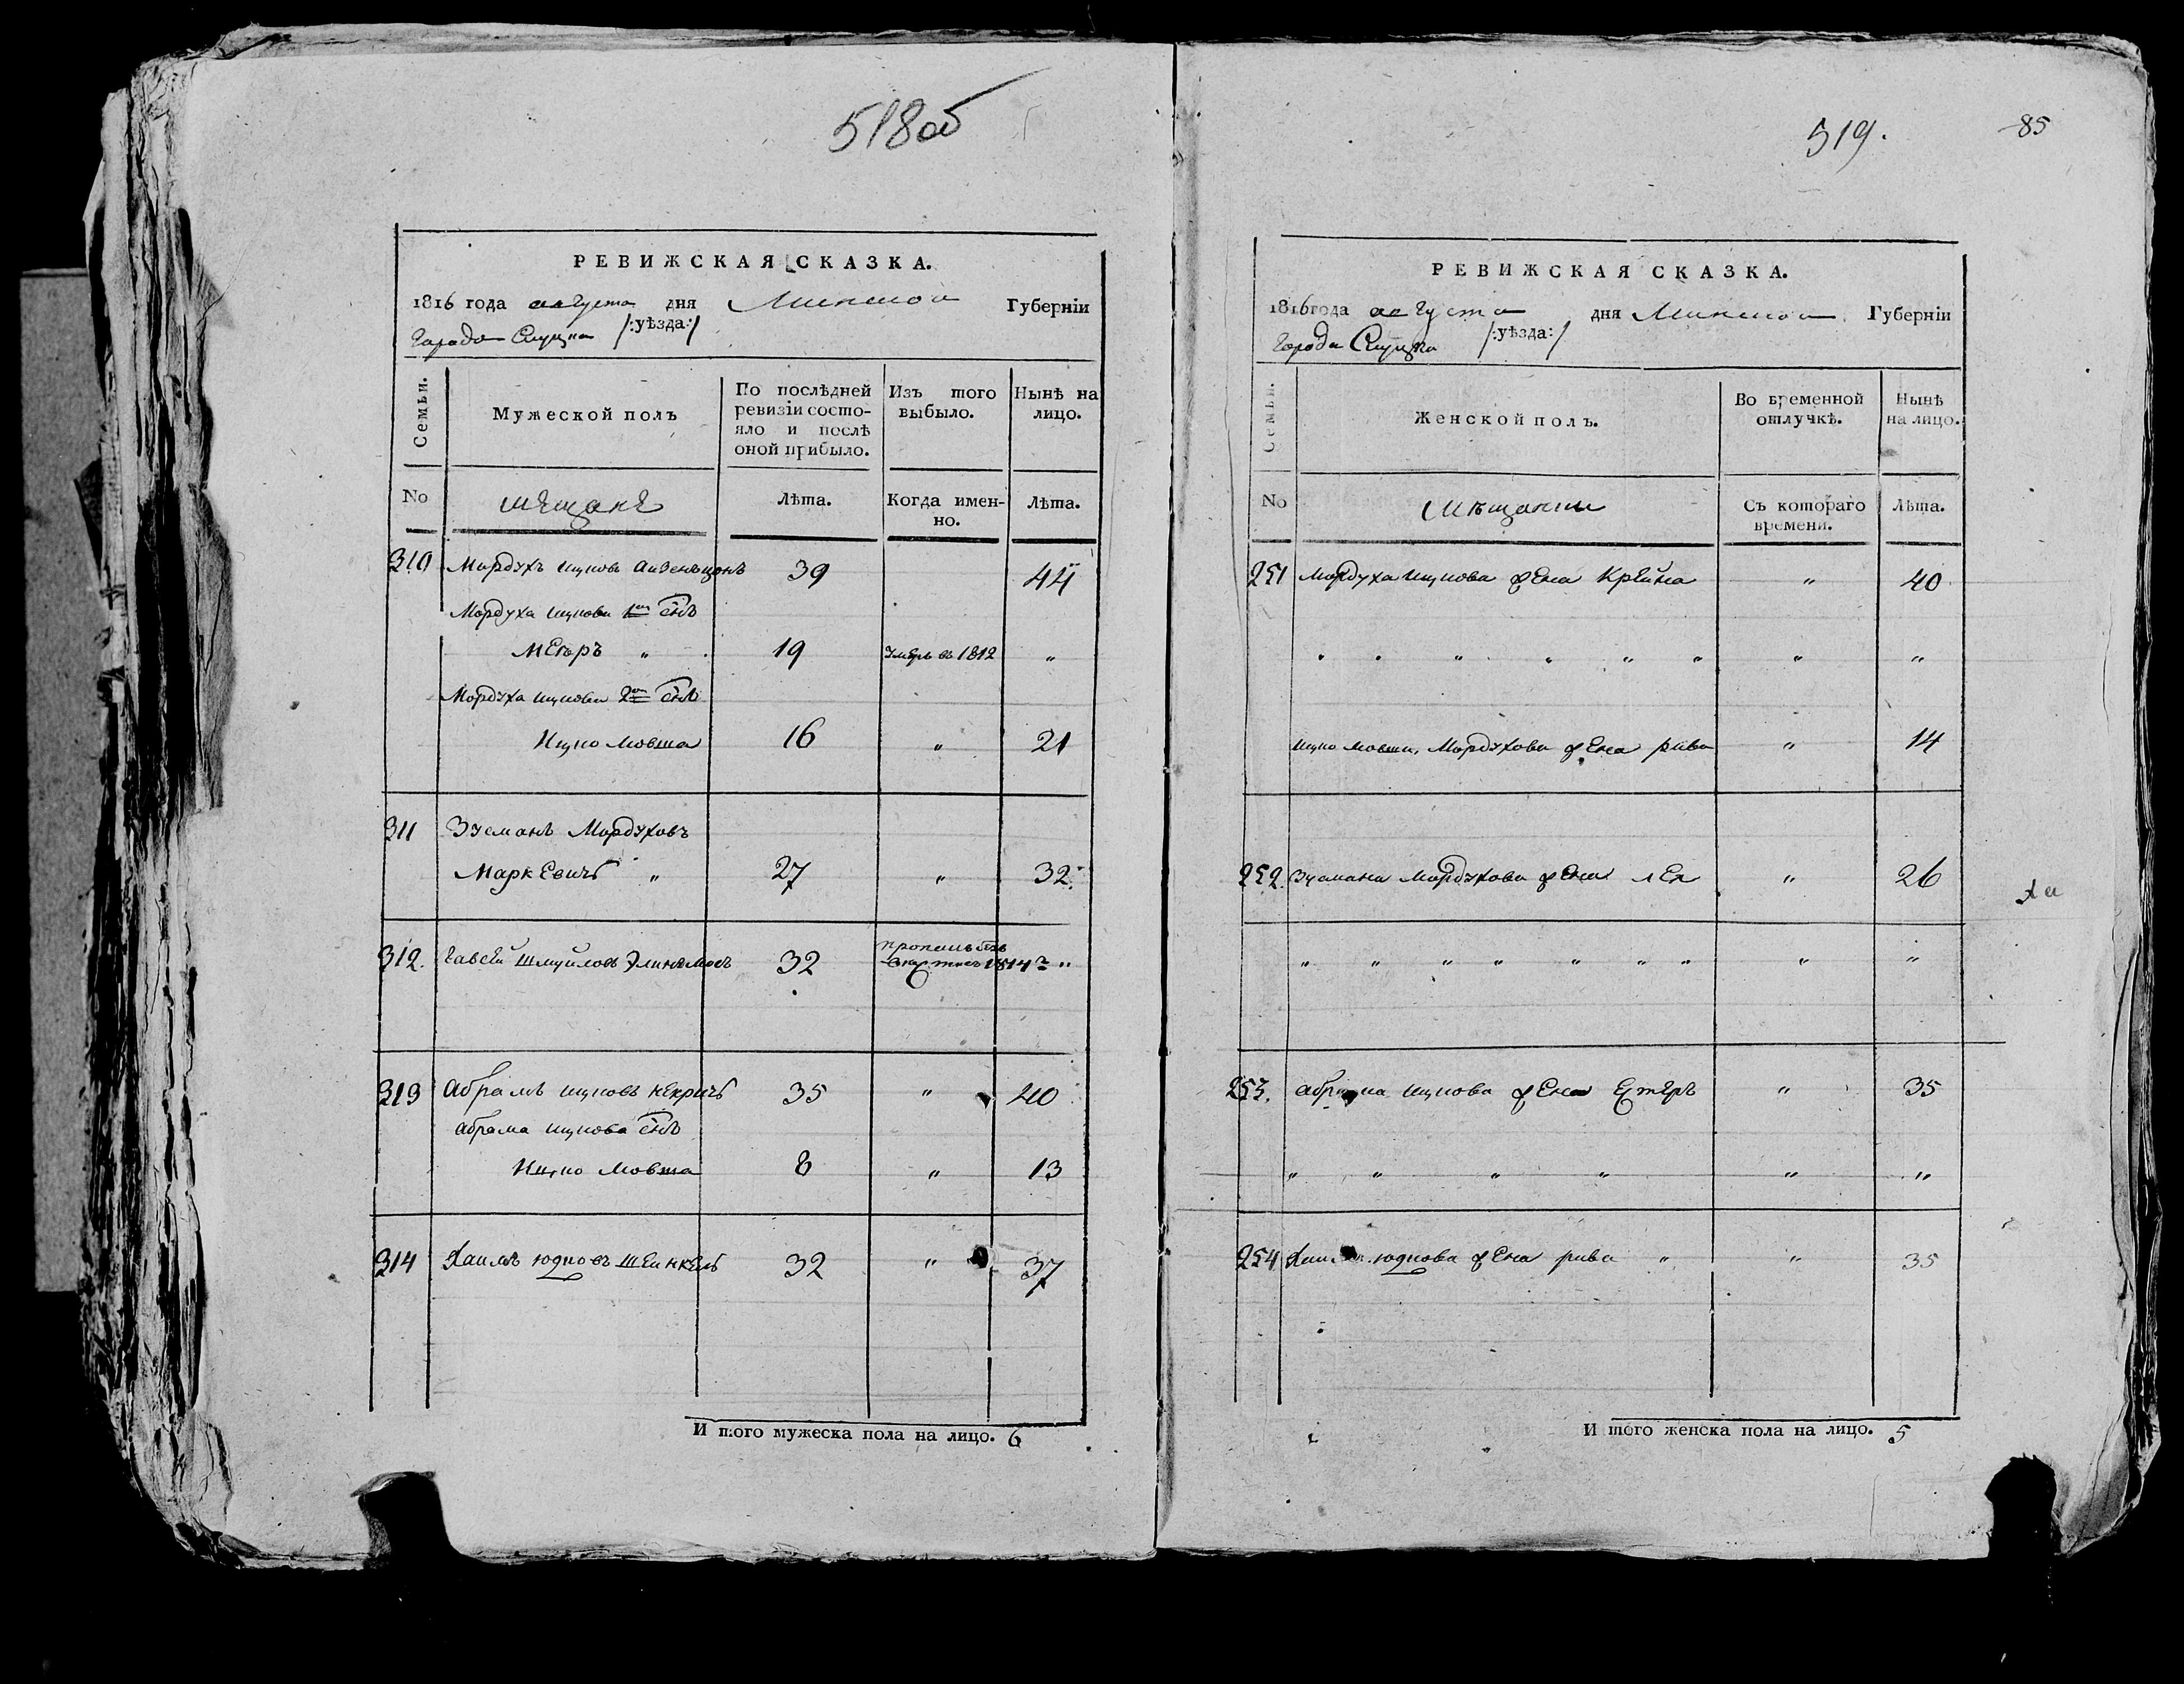 518об
РЕВИЖСКАЯ СКАЗКА.
1816 года августа дня Минской Губерніи
Города Слуцка /:уѣзда:/
Семьи.
Мужеской полъ
По послѣдней ревизіи состояло и послѣ оной прибыло.
Изъ того выбыло.
Нынѣ на лицо.
No
мѣщанѣ
Лѣта.
Когда именно.
Лѣта.
310 Мордухъ Ицковъ 39 44
Мордуха Ицкова 1й снъ
Мееръ „ 19 умеръ въ 1812 „
Мордуха Ицкова 2й снъ
Ицко Мовша 16 „ 21
311 Зусманъ Мордуховъ
Маркевичъ „ 27 „ 32
312. Евсей Шмуйловъ 32 пропалъ безъ 1814 „
313 Абрамъ Ицковъ 35 „ 40
Абрама Ицкова снъ
Ицко Мовша 8 „ 13
314 Хаимъ Юдковъ Шеинкель 32 „ 37
И того мужеска пола на лицо. 6
519.
85
РЕВИЖСКАЯ СКАЗКА.
1816 года августа дня Минской Губерніи
Города Слуцка /:уѣзда:/
Семьи.
Женской полъ.
Во временной отлучкѣ.
Нынѣ на лицо.
No
Мѣщанки
Съ котораго времени.
Лѣта.
251 Мордуха Ицкова жена Крейна „ 40
„ „ „ „ „ „ „ „
Ицко Мовши Мордухова жена Рива „ 14
252. Зусмана Мордухова жена Лея „ 26
„ „ „ „ „ „ „ „ „
253. Абрама Ицкова жена Естеръ „ 35
„ „ „ „ „ „
254 Хаима Юдкова жена Рива „ „ 35
И того женска пола на лицо. 5